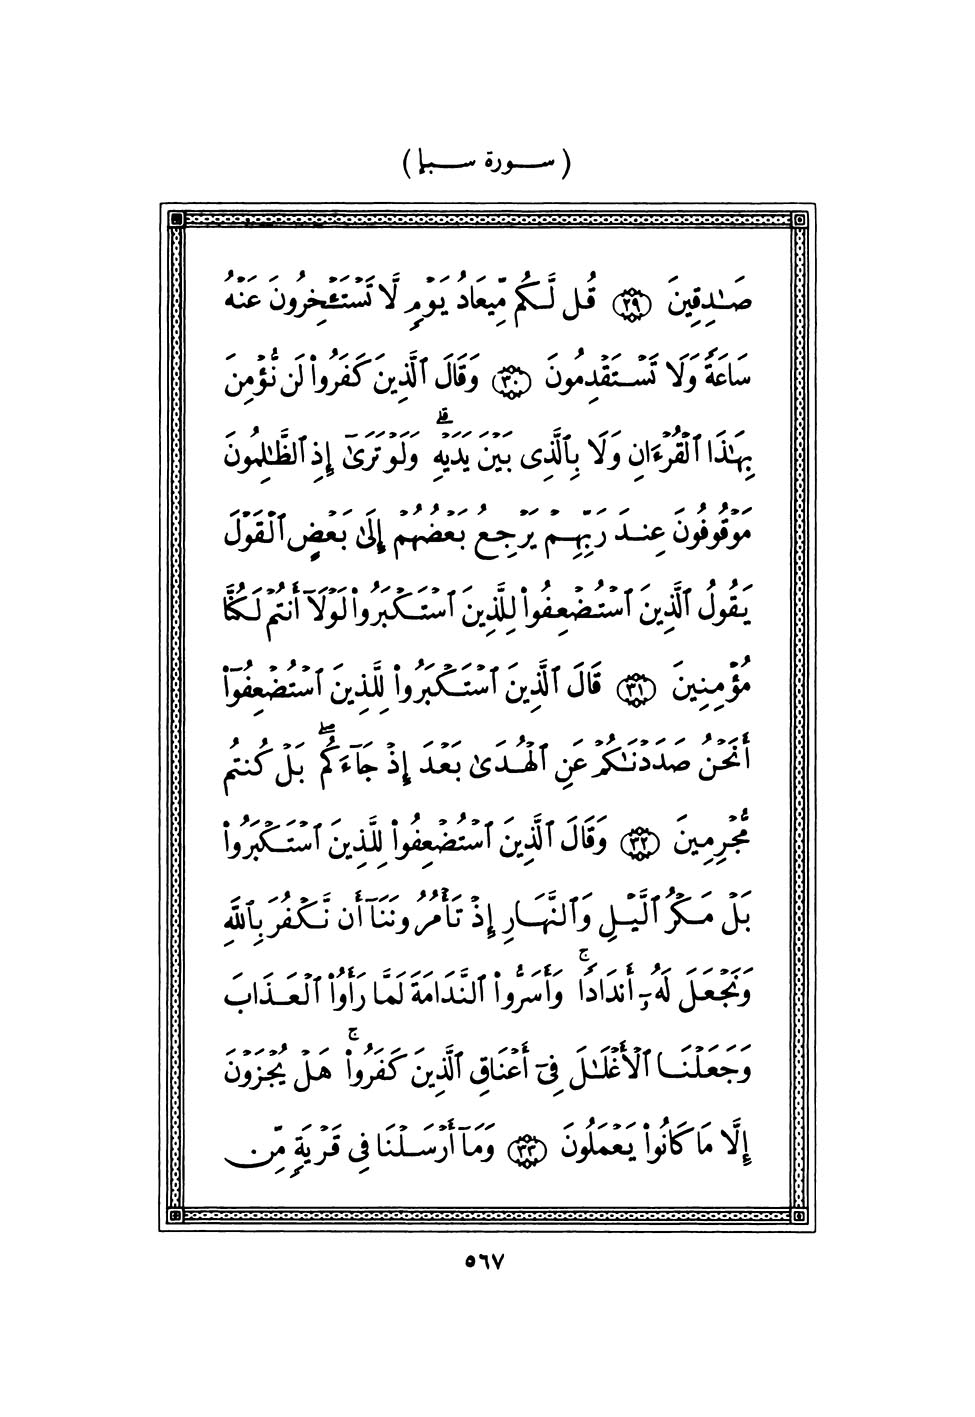 ( سورة سبإ )
صَـٰدِقِينَ ٢٩ قُل لَّكُم مِّيعَادُ يَوْمٍ لَّا تَسْتَـْٔخِرُونَ عَنْهُ
سَاعَةً وَلَا تَسْتَقْدِمُونَ ٣٠ وَقَالَ ٱلَّذِينَ كَفَرُوا۟ لَن نُّؤْمِنَ
بِهَـٰذَا ٱلْقُرْءَانِ وَلَا بِٱلَّذِى بَيْنَ يَدَيْهِ ۗ وَلَوْ تَرَىٰٓ إِذِ ٱلظَّـٰلِمُونَ
مَوْقُوفُونَ عِندَ رَبِّهِمْ يَرْجِعُ بَعْضُهُمْ إِلَىٰ بَعْضٍ ٱلْقَوْلَ
يَقُولُ ٱلَّذِينَ ٱسْتُضْعِفُوا۟ لِلَّذِينَ ٱسْتَكْبَرُوا۟ لَوْلَآ أَنتُمْ لَكُنَّا
مُؤْمِنِينَ ٣١ قَالَ ٱلَّذِينَ ٱسْتَكْبَرُوا۟ لِلَّذِينَ ٱسْتُضْعِفُوٓا۟
أَنَحْنُ صَدَدْنَـٰكُمْ عَنِ ٱلْهُدَىٰ بَعْدَ إِذْ جَآءَكُم ۖ بَلْ كُنتُم
مُّجْرِمِينَ ٣٢ وَقَالَ ٱلَّذِينَ ٱسْتُضْعِفُوا۟ لِلَّذِينَ ٱسْتَكْبَرُوا۟
بَلْ مَكْرُ ٱلَّيْلِ وَٱلنَّهَارِ إِذْ تَأْمُرُونَنَآ أَن نَّكْفُرَ بِٱللَّهِ
وَنَجْعَلَ لَهُۥٓ أَندَادًا ۚ وَأَسَرُّوا۟ ٱلنَّدَامَةَ لَمَّا رَأَوُا۟ ٱلْعَذَابَ
وَجَعَلْنَا ٱلْأَغْلَـٰلَ فِىٓ أَعْنَاقِ ٱلَّذِينَ كَفَرُوا۟ ۚ هَلْ يُجْزَوْنَ
إِلَّا مَا كَانُوا۟ يَعْمَلُونَ ٣٣ وَمَآ أَرْسَلْنَا فِى قَرْيَةٍ مِّن
٥٦٧